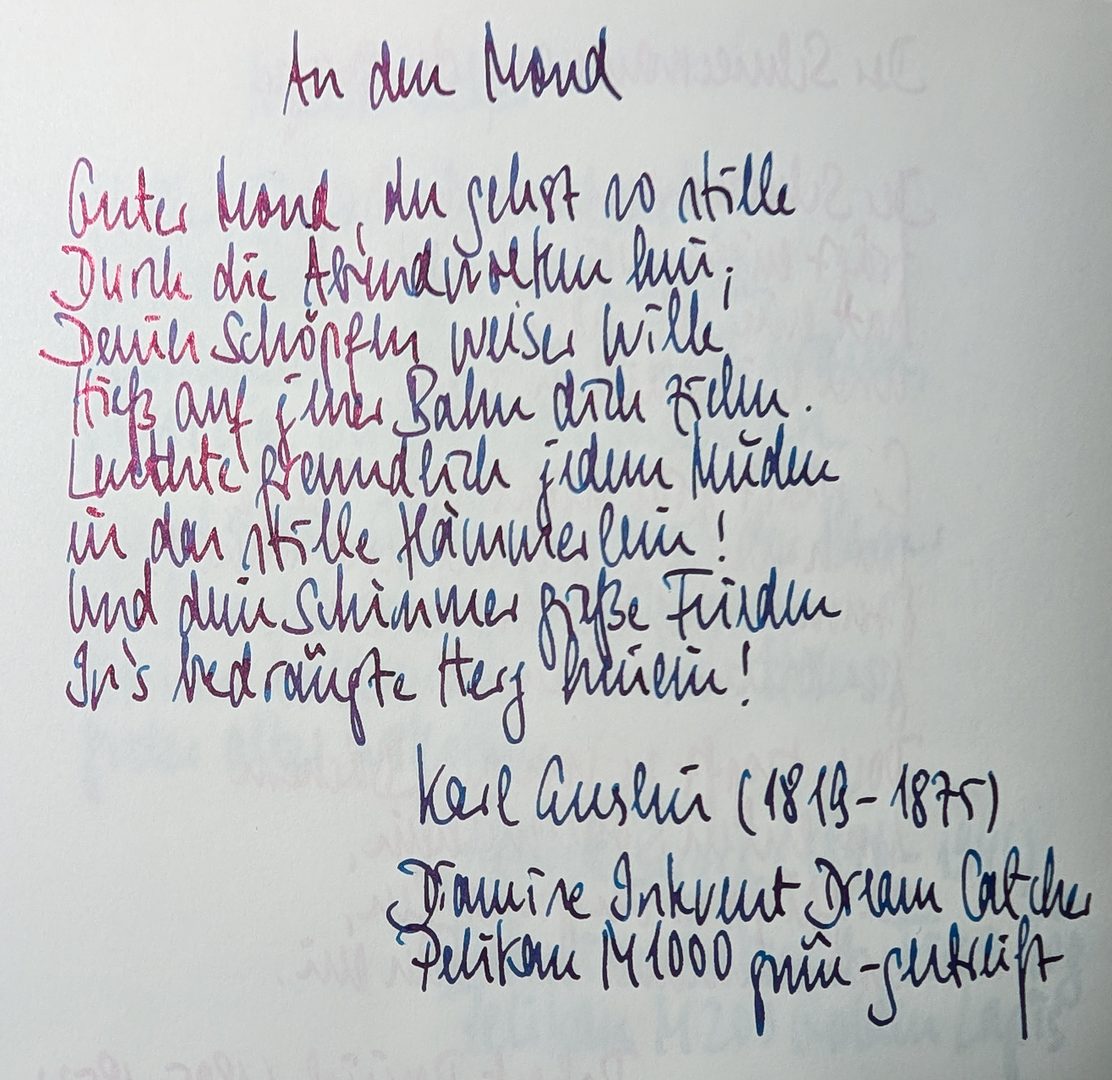 An den Mond
Guter Mond, du gehst so stille
Durch die Abendwolken hin;
Deines Schöpfers weiser Wille
Hieß auf jener Bahn dich ziehn.
Leuchte freundlich jedem Müden
in das stille Kämmerlein!
Und dein Schimmer gieße Frieden
In's bedrängte Herz hinein!
Karl Enslin (1819-1875)
Diamine Inkvent Dream Catcher
Pelikan M1000 grün-gestreift